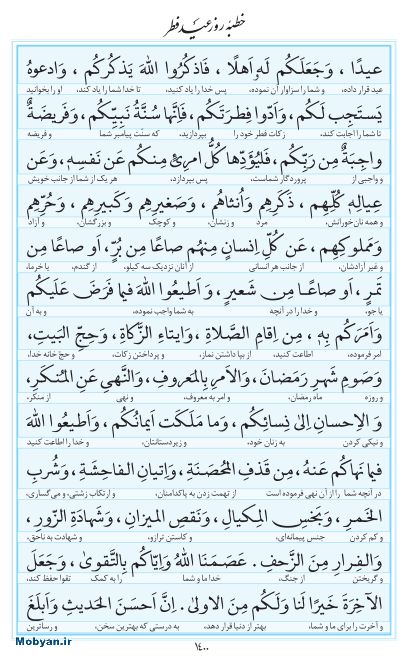 خطبهٔ روز عید فطر
عيدًا ، وَجَعَلَكُم لَهُ اَهلًا ، فَاذكُرُوا اللهَ يَذكُركُم ، وَادعوهُ
عید قرار داده، و شما را سزاوار آن نموده، پس خدا را یاد کنید، تا خدا شما را یاد کند، او را بخوانید
يَستَجِب لَكُم ، وَاَدّوا فِطرَتَكُم ، فَاِنَّها سُنَّةُ نَبِيِّكُم ، وَفَريضَةٌ
تا شما را اجابت کند، زکات فطر خود را بپردازید، که سنّت پیامبر شما و فریضه
واجِبَةٌ مِن رَبِّكُم ، فَليُؤَدِّها كُلُّ امرِئٍ مِنكُم عَن نَفسِهِ ، وَعَن
و واجبی از پروردگار شماست، پس بپردازد، هر یک از شما از جانب خویش
عِيالِهِ كُلِّهِم ، ذَكَرِهِم وَاُنثاهُم ، وَصَغيرِهِم وَكَبيرِهِم ، وَحُرِّهِم
و همه نان‌خورانش، مرد و زنشان، و کوچک و بزرگشان، و آزاد
وَمَملوكِهِم ، عَن كُلِّ اِنسانٍ مِنهُم صاعًا مِن بُرٍّ ، اَو صاعًا مِن
و غیر آزادشان، از جانب هر انسانی از آنان نزدیک سه کیلو، از گندم، یا خرما،
تَمرٍ ، اَو صاعًا مِن شَعيرٍ ، وَ اَطيعُوا اللهَ فيما فَرَضَ عَلَيكُم
یا جو، و خدا را در آنچه به شما واجب نموده، و به آن
وَاَمَرَكُم بِهِ ، مِن اِقامِ الصَّلاةِ ، وَايتاءِ الزَّكاةِ ، وَحِجِّ البَيتِ ،
امر فرموده، اطاعت کنید، از بپا داشتن نماز، و پرداختن زکات، و حجّ خانه خدا،
وَصَومِ شَهرِ رَمَضانَ ، وَالاَمرِ بِالمَعروفِ ، وَالنَّهيِ عَنِ المُنكَرِ ،
و روزه ماه رمضان، و امر به معروف، و نهی از منکر،
وَ الاِحسانِ اِلىٰ نِسائِكُم ، وَما مَلَكَت اَيمانُكُم ، وَاَطيعُوا اللهَ
و نیکی کردن به زنان خود، و زیردستانتان، و خدا را اطاعت کنید
فيما نَهاكُم عَنهُ ، مِن قَذفِ المُحصَنَةِ ، وَاِتيانِ الفاحِشَةِ ، وَشُربِ
در آنچه شما را از آن نهی فرموده است از تهمت زدن به پاکدامنان، و ارتکاب زشتی، و می‌گساری،
الخَمرِ ، وَبَخسِ المِكيالِ ، وَنَقصِ الميزانِ ، وَشَهادَةِ الزّورِ ،
و کم کردن جنس پیمانه‌ای، و کاستن ترازو، و شهادت به ناحق،
وَالفِرارِ مِنَ الزَّحفِ . عَصَمَنَا اللهُ وَاِيّاكُم بِالتَّقوىٰ ، وَجَعَلَ
و گریختن از جنگ، خدا ما و شما را به کمک تقوا حفظ کند،
الآخِرَةَ خَيرًا لَنا وَلَكُم مِنَ الاولىٰ . اِنَّ اَحسَنَ الحَديثِ وَاَبلَغَ
و آخرت را برای ما و شما، بهتر از دنیا قرار دهد، به درستی که بهترین سخن، و رساترین
Mobyan.ir
۱۴۰۰